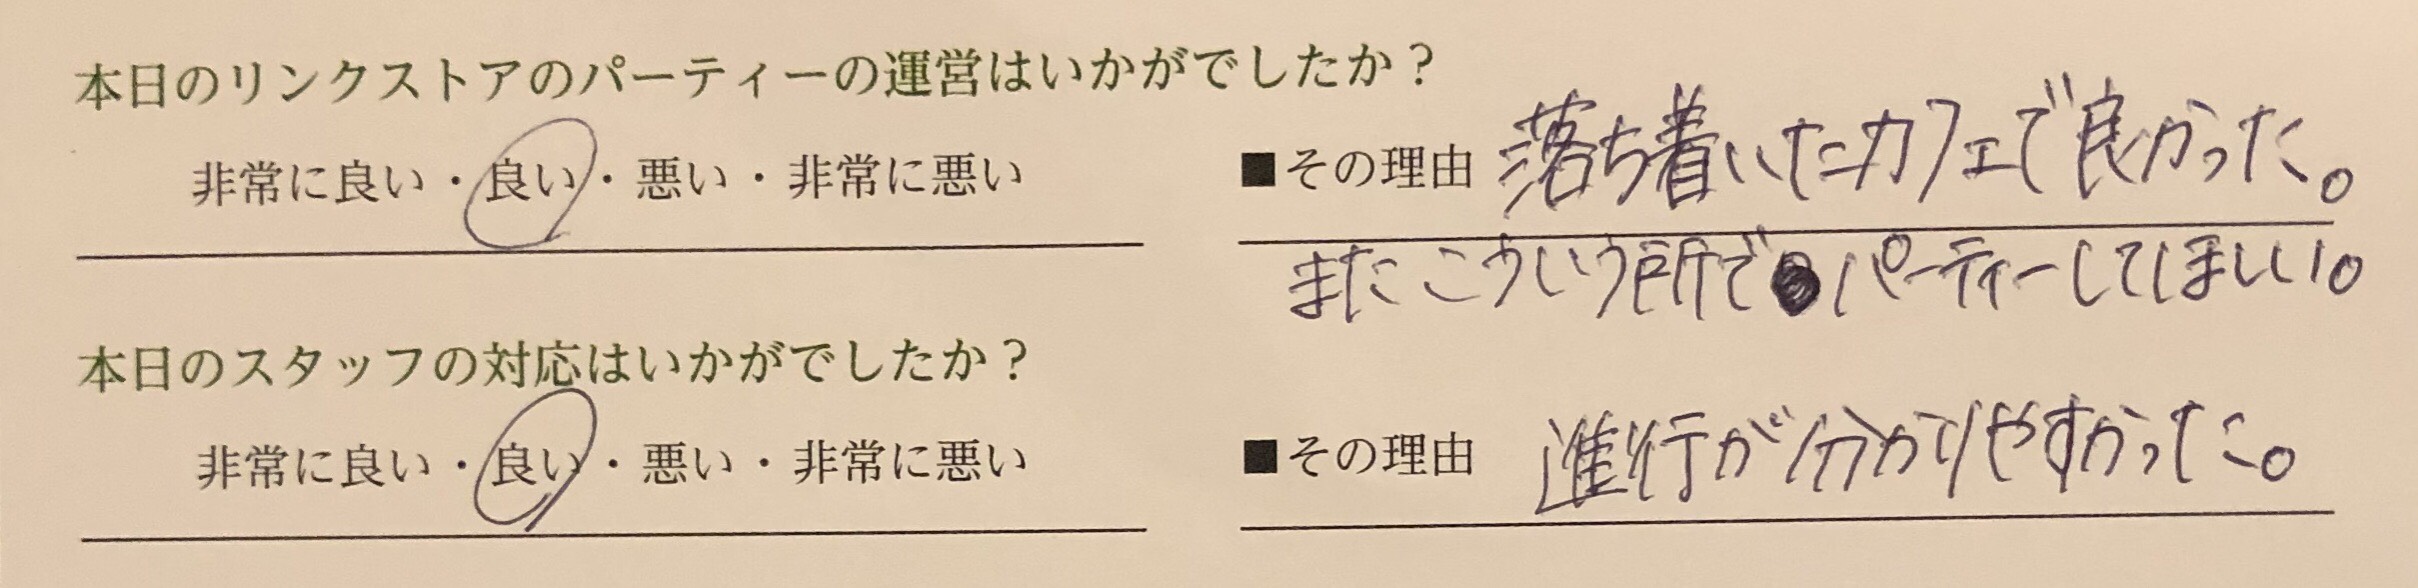 本日のリンクストアのパーティーの運営はいかがでしたか？
非常に良い・良い・悪い・非常に悪い
■その理由 落ち着いたカフェで良かった。
またこういう所でパーティーしてほしい。
本日のスタッフの対応はいかがでしたか？
非常に良い・良い・悪い・非常に悪い
■その理由 進行が分かりやすかった。